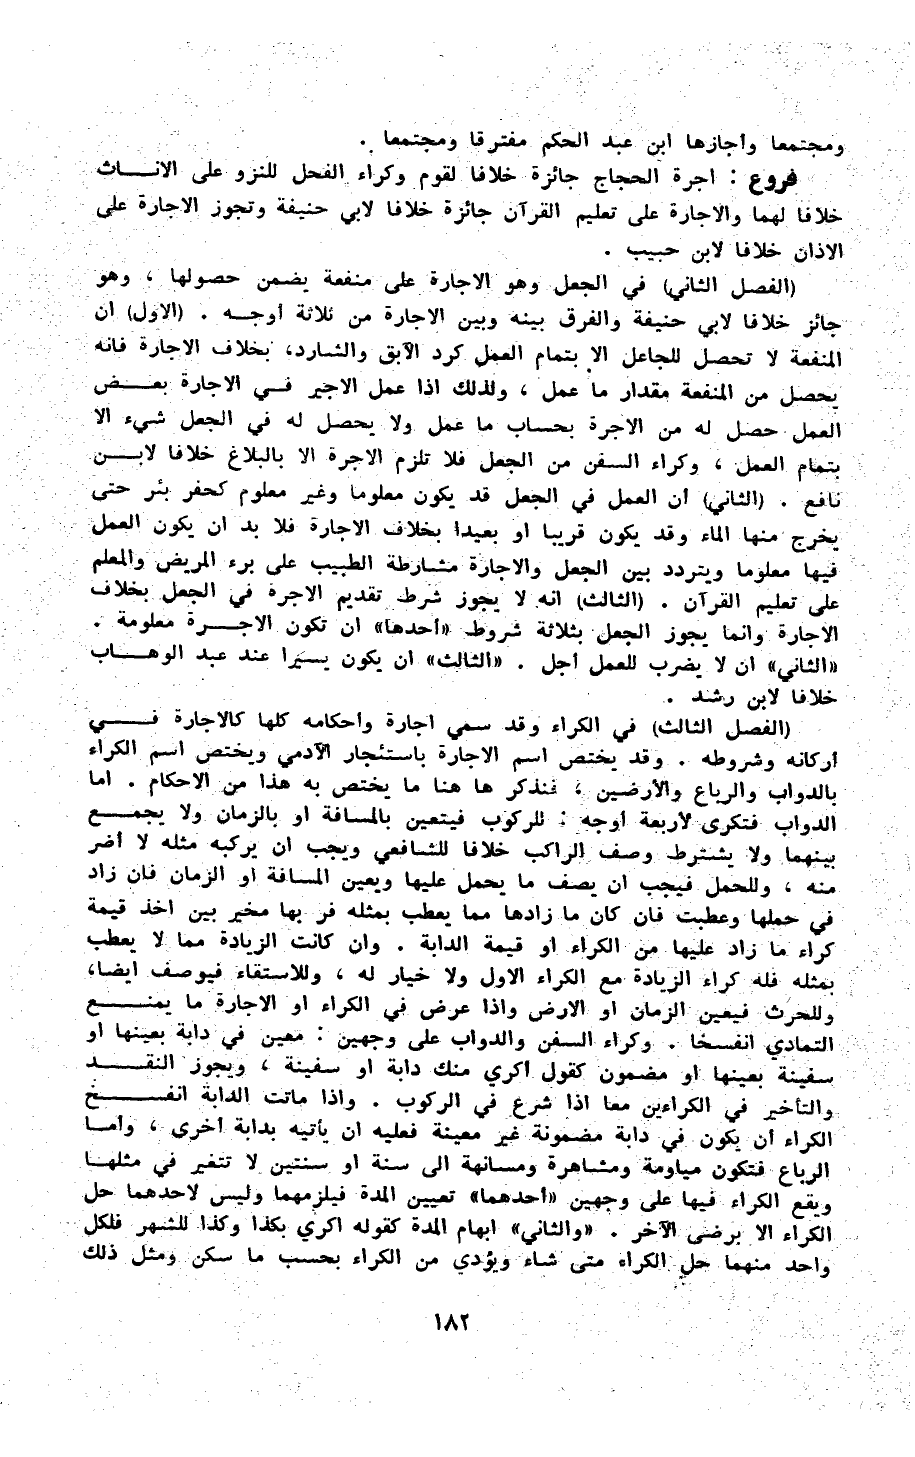 ومجتمعا وأجازها ابن عبد الحكم مفترقا ومجتمعا .
فروع : اجرة الحجاج جائزة خلافا لقوم وكراء الفحل للنزو على الانـــاث
خلافا لهما والاجارة على تعليم القرآن جائزة خلافا لابي حنيفة وتجوز الاجارة على
الاذان خلافا لابن حبيب .
(الفصل الثاني) في الجعل وهو الاجارة على منفعة يضمن حصولها ، وهو
جائز خلافا لابي حنيفة والفرق بينه وبين الاجارة من ثلاثة أوجـــه . (الاول) ان
المنفعة لا تحصل للجاعل الا بتمام العمل كرد الآبق والشارد، بخلاف الاجارة فانه
يحصل من المنفعة مقدار ما عمل ، ولذلك اذا عمل الاجير فـــي الاجارة بعـــض
العمل حصل له من الاجرة بحساب ما عمل ولا يحصل له في الجعل شيء الا
بتمام العمل ، وكراء السفن من الجعل فلا تلزم الاجرة الا بالبلاغ خلافا لابـــن
نافع . (الثاني) أن العمل في الجعل قد يكون معلوما وغير معلوم كحفر بئر حتى
يخرج منها الماء وقد يكون قريبا او بعيدا بخلاف الاجارة فلا بد ان يكون العمل
فيها معلوما ويتردد بين الجعل والاجارة مشارطة الطبيب على برء المريض والمعلم
على تعليم القرآن . (الثالث) انه لا يجوز شرط تقديم الاجرة في الجعل بخلاف
الاجارة وانما يجوز الجعل بثلاثة شروط «أحدها» ان تكون الاجـــرة معلومة .
«الثاني» ان لا يضرب للعمل اجل . «الثالث» ان يكون يسيرا عند عبد الوهـــاب
خلافا لابن رشد .
(الفصل الثالث) في الكراء وقد سمي اجارة واحكامه كلها كالاجارة فـــي
أركانه وشروطه . وقد يختص اسم الاجارة باستئجار الآدمي ويختص اسم الكراء
بالدواب والرباع والأرضين ، فنذكر ها هنا ما يختص به هذا من الاحكام . اما
الدواب فتكرى لأربعة أوجه : للركوب فيتعين بالمسافة او بالزمان ولا يجمـــع
بينهما ولا يشترط وصف الراكب خلافا للشافعي ويجب ان يركبه مثله لا أضر
منه ، وللحمل فيجب ان يصف ما يحمل عليها ويعين المسافة او الزمان فان زاد
في حملها وعطبت فان كان ما زادها مما يعطب بمثله فر بها مخير بين اخذ قيمة
كراء ما زاد عليها من الكراء او قيمة الدابة . وان كانت الزيادة مما لا يعطب
بمثله فله كراء الزيادة مع الكراء الاول ولا خيار له ، وللاستقاء فيوصف ايضا،
وللحرث فيعين الزمان او الارض واذا عرض في الكراء او الاجارة ما يمنـــع
التمادي انفسخا . وكراء السفن والدواب على وجهين : معين في دابة بعينها او
سفينة بعينها او مضمون كقول أكري منك دابة او سفينة ، ويجوز النقـــد
والتأخير في الكراءين معا اذا شرع في الركوب . واذا ماتت الدابة انفـــسخ
الكراء أن يكون في دابة مضمونة غير معينة فعليه ان يأتيه بدابة أخرى ، وأمـــا
الرباع فتكون مياومة ومشاهرة ومسانهة الى سنة او سنتين لا تتغير في مثلهـــا
ويقع الكراء فيها على وجهين «أحدهما» تعيين المدة فيلزمهما وليس لاحدهما حل
الكراء الا برضى الآخر . «والثاني» ابهام المدة كقوله اكري بكذا وكذا للشهر فلكل
واحد منهما حل الكراء متى شاء ويؤدي من الكراء بحسب ما سكن ومثل ذلك
١٨٢